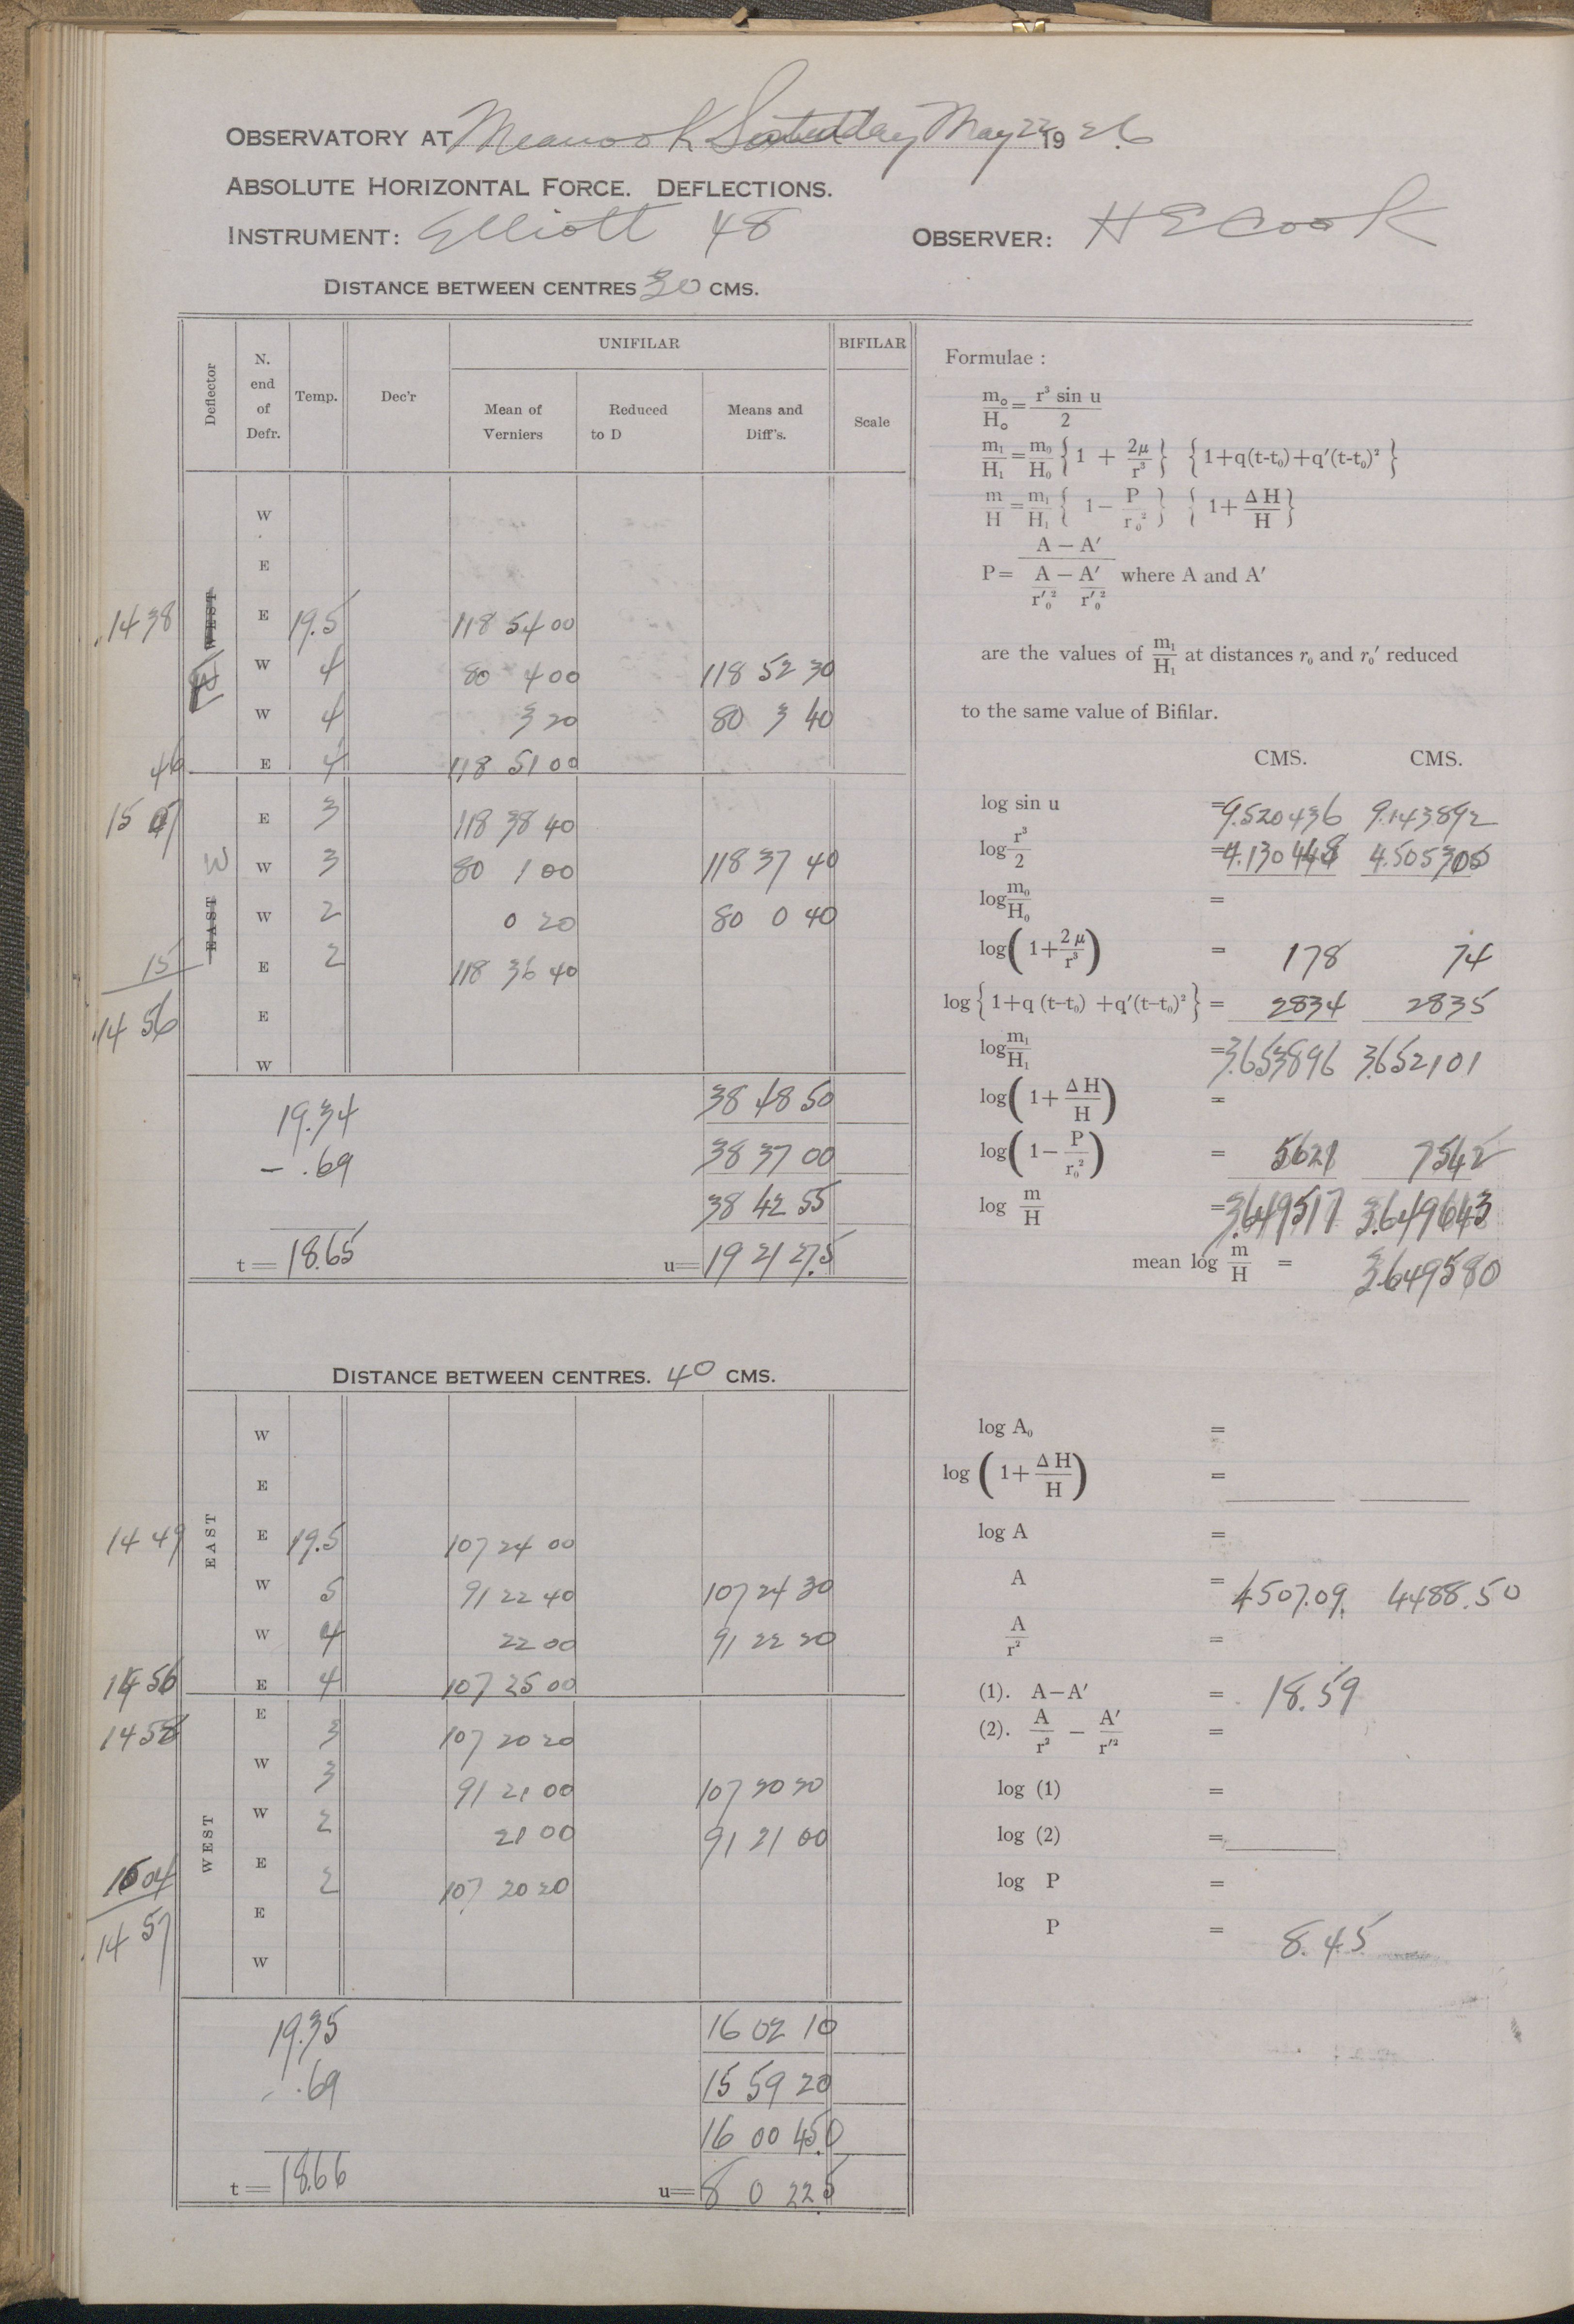 OBSERVATORY AT Meanook Saturday May 22 1926
ABSOLUTE HORIZONTAL FORCE. DEFLECTIONS.
INSTRUMENT: Elliott 48 OBSERVER: H E Cook
DISTANCE BETWEEN CENTRES 30 CMS.
Deflector N. end of Defr. Temp. Dec'r UNIFILAR BIFILAR
Mean of Verniers Reduced to D Means and Diff's. Scale
W
E
WEST
14 38 E 19.5 118 54 00
W 4 80 4 00 118 52 30
W 4 3 20 80 3 40
46 E 4 118 51 00
15 07 E 3 118 38 40
W W 3 80 1 00 118 37 40
EAST W 2 0 20 80 0 40
15 E 2 118 36 40
14 56 E
W
19.34 38 48 50
- .69 38 37 00
38 42 55
t = 18.65 u = 19 21 27.5
DISTANCE BETWEEN CENTRES. 40 CMS.
W
E
EAST
14 49 E 19.5 107 24 00
W 5 91 22 40 107 24 30
W 4 22 00 91 22 20
14 56 E 4 107 25 00
14 58 E 3 107 20 20
W 3 91 21 00 107 20 20
WEST W 2 21 00 91 21 00
15 04 E 2 107 20 20
14 57 E
W
19.35 16 02 10
- .69 15 59 20
16 00 45.0
t = 18.66 u = 8 0 22.5
Formulae :
m₀/H₀ = r³ sin u/2
m₁/H₁ = m₀/H₀ {1 + 2μ/r³} {1+q(t-t₀)+q′(t-t₀)²}
m/H = m₁/H₁ {1 − P/r₀²} {1+ ΔH/H}
P = A − A′ / (A/r′₀² − A′/r′₀²) where A and A′
are the values of m₁/H₁ at distances r₀ and r₀′ reduced
to the same value of Bifilar.
CMS. CMS.
log sin u = 9.520436 9.143892
log r³/2 = 4.130448 4.505305
log m₀/H₀ =
log (1+ 2μ/r³) = 178 74
log {1+q (t-t₀) +q′(t-t₀)²} = 2834 2835
log m₁/H₁ = 3.653896 3.652101
log (1+ ΔH/H) =
log (1− P/r₀²) = 5621 7542
log m/H = 3.649517 3.649643
mean log m/H = 3.649580
log A₀ =
log (1+ ΔH/H) =
log A =
A = 4507.09. 4488.50
A/r² =
(1). A−A′ = 18.59
(2). A/r² − A′/r′² =
log (1) =
log (2) =
log P =
P = 8.45